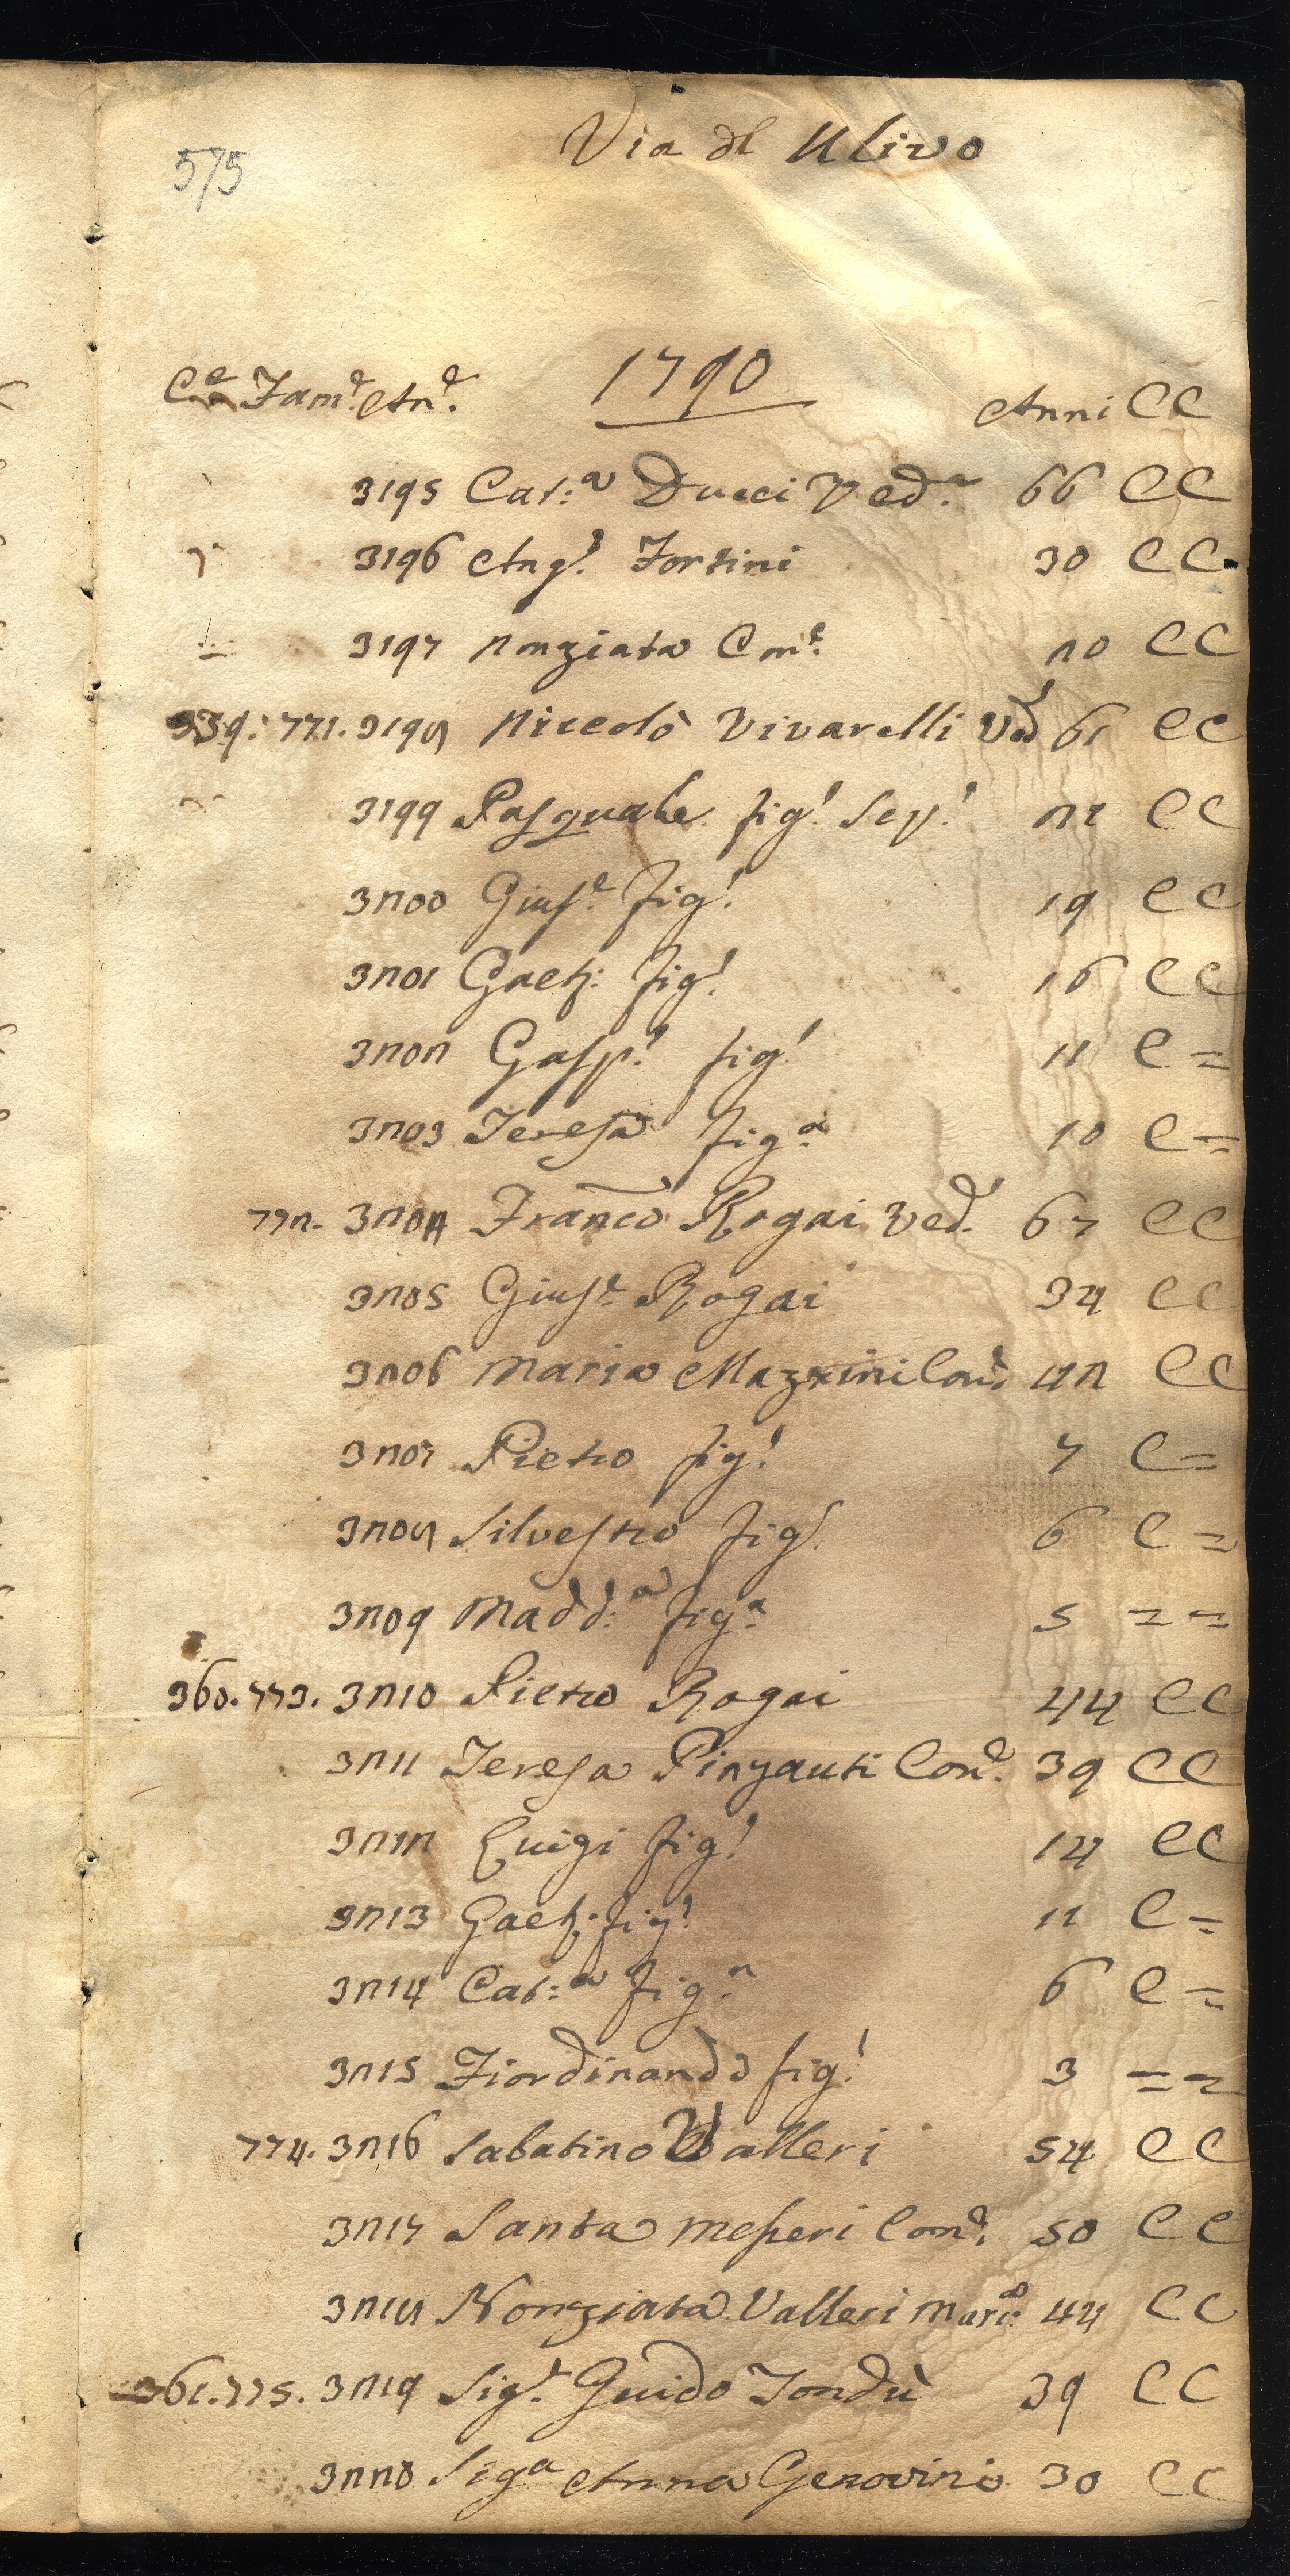 575
Via dl Ulivo
Ce Fame Ane. 1790 Anni CC
3195 Cat:a Ducci Ved.a 66 CC
3196 Angl. Fortini 30 CC
3197 Nonziata Cone. 20 CC
339: 771. 3198 Niccolò Vivarelli Ved 61 CC
3199 Pasquale figl. Sep. 22 CC
3200 Giuse. figl. 19 CC
3201 Gaet: figl. 16 CC
3202 Gasp. figl. 11 C =
3203 Teresa fig.a 10 C =
772. 3204 Franco Rogai Ved. 67 CC
3205 Giuse. Rogai 34 CC
3206 Maria Mazzini Cone 42 CC
3207 Pietro figl. 7 C =
3208 Silvestro figl. 6 C =
3209 Madd:a fig.a 5 = =
360. 773. 3210 Pietro Rogai 44 CC
3211 Teresa Pinzauti Cone. 39 CC
3212 Luigi figl. 14 CC
3213 Gaet: figl. 11 C =
3214 Cat:a fig.a 6 C =
3215 Fiordinando figl. 3 = =
774. 3216 Sabatino Valleri 54 CC
3217 Santa Messeri Cone. 50 CC
3218 Nonziata Valleri 44 CC
361. 775. 3219 Sigr. Guido Tondù 39 CC
3220 Siga Anna Genovini 30 CC